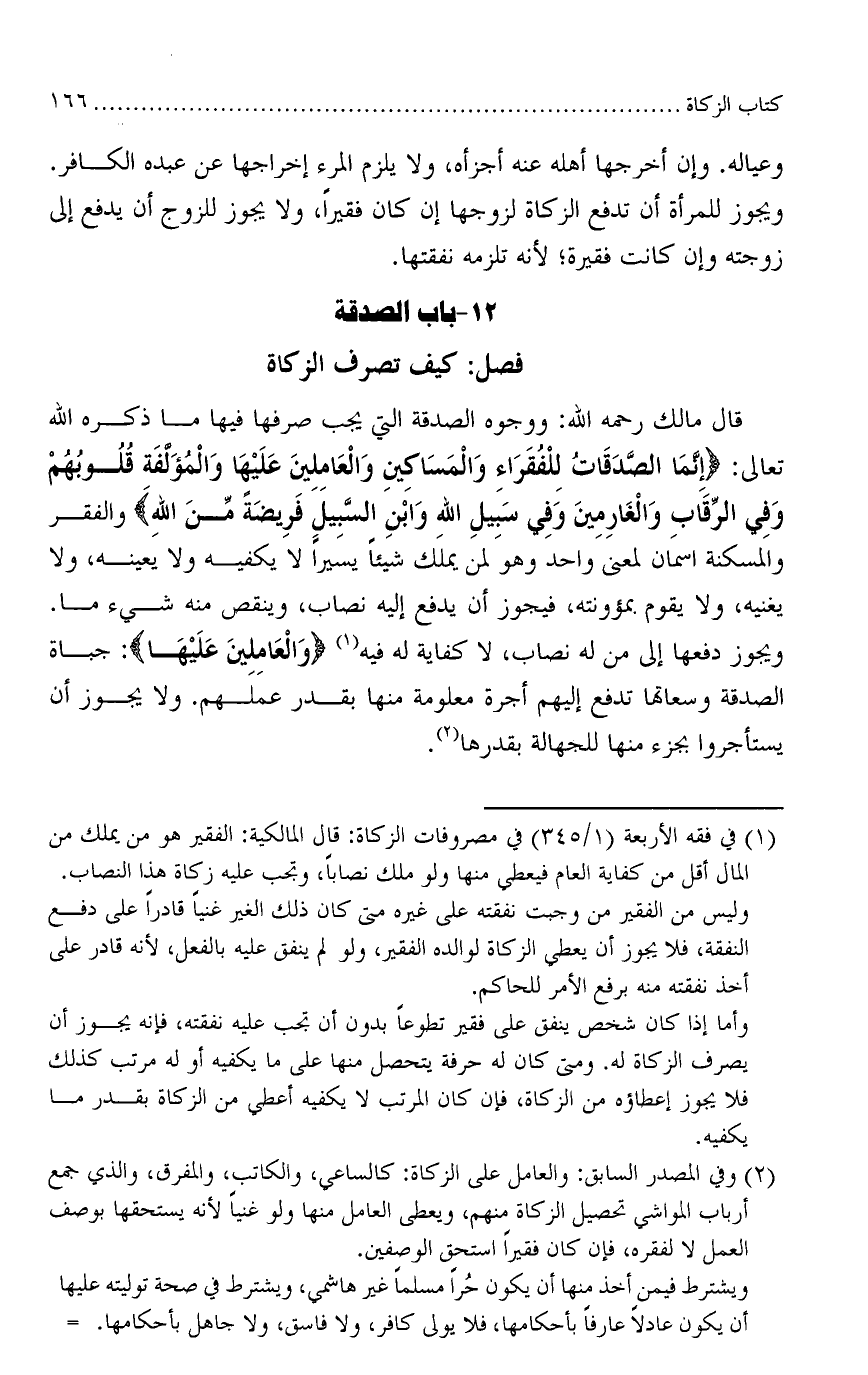 كتاب الزكاة .......................................................................... ١٦٦
وعياله. وإن أخرجها أهله عنه أجزأه، ولا يلزم المرء إخراجها عن عبده الكـــافر.
ويجوز للمرأة أن تدفع الزكاة لزوجها إن كان فقيراً، ولا يجوز للزوج أن يدفع إلى
زوجته وإن كانت فقيرة؛ لأنه تلزمه نفقتها.
١٢-باب الصدقة
فصل: كيف تصرف الزكاة
قال مالك رحمه الله: ووجوه الصدقة التي يجب صرفها فيها مـــا ذكـــره الله
تعالى: ﴿إِنَّمَا الصَّدَقَاتُ لِلْفُقَرَاءِ وَالْمَسَاكِينِ وَالْعَامِلِينَ عَلَيْهَا وَالْمُؤَلَّفَةِ قُلُـــوبُهُمْ
وَفِي الرِّقَابِ وَالْغَارِمِينَ وَفِي سَبِيلِ اللهِ وَابْنِ السَّبِيلِ فَرِيضَةً مِّـــنَ اللهِ﴾ والفقـــر
والمسكنة اسمان لمعنى واحد وهو لمن يملك شيئاً يسيراً لا يكفيـــه ولا يعينـــه، ولا
يغنيه، ولا يقوم بمؤونته، فيجوز أن يدفع إليه نصاب، وينقص منه شـــيء مـــا.
ويجوز دفعها إلى من له نصاب، لا كفاية له فيه(١) ﴿وَالْعَامِلِينَ عَلَيْهَـــا﴾: جبـــاة
الصدقة وسعاتها تدفع إليهم أجرة معلومة منها بقـــدر عملـــهم. ولا يجـــوز أن
يستأجروا بجزء منها للجهالة بقدرها(٢).
(١) في فقه الأربعة (٣٤٥/١) في مصروفات الزكاة: قال المالكية: الفقير هو من يملك من
المال أقل من كفاية العام فيعطي منها ولو ملك نصاباً، وتجب عليه زكاة هذا النصاب.
وليس من الفقير من وجبت نفقته على غيره متى كان ذلك الغير غنياً قادراً على دفـــع
النفقة، فلا يجوز أن يعطي الزكاة لوالده الفقير، ولو لم ينفق عليه بالفعل، لأنه قادر على
أخذ نفقته منه برفع الأمر للحاكم.
وأما إذا كان شخص ينفق على فقير تطوعاً بدون أن تجب عليه نفقته، فإنه يجـــوز أن
يصرف الزكاة له. ومتى كان له حرفة يتحصل منها على ما يكفيه أو له مرتب كذلك
فلا يجوز إعطاؤه من الزكاة، فإن كان المرتب لا يكفيه أعطي من الزكاة بقـــدر مـــا
يكفيه.
(٢) وفي المصدر السابق: والعامل على الزكاة: كالساعي، والكاتب، والمفرق، والذي جمع
أرباب المواشي تحصيل الزكاة منهم، ويعطى العامل منها ولو غنياً لأنه يستحقها بوصف
العمل لا لفقره، فإن كان فقيراً استحق الوصفين.
ويشترط فيمن أخذ منها أن يكون حُراً مسلماً غير هاشمي، ويشترط في صحة توليته عليها
أن يكون عادلاً عارفاً بأحكامها، فلا يولى كافر، ولا فاسق، ولا جاهل بأحكامها. =